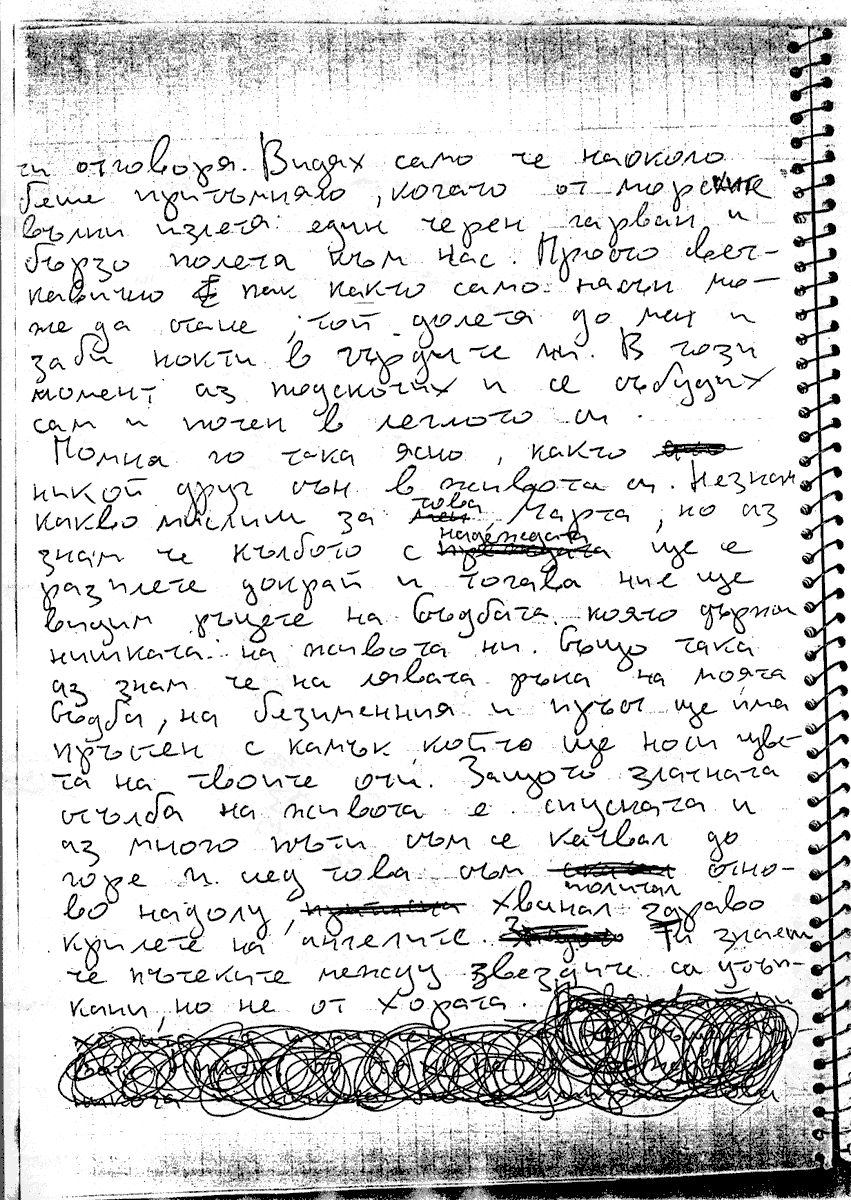 ти отговоря. Видях само че наоколо
беше притъмняло, когато от морските
вълни излетя един черен гарван и
бързо полетя към нас. Просто свет-
кавично пак както само насън мо-
же да стане, той долетя до мен и
заби нокти в гърдите ми. В този
момент аз подскочих и се събудих
сам и потен в леглото си.
Помня го така ясно, както
никой друг сън в живота си. Незнам
какво мислиш за това, Марта, но аз
знам че кълбото с надеждата ще се
разплете докрай и тогава ние ще
видим ръцете на съдбата която държи
нишката на живота ни. Също така
аз знам че на лявата ръка на моята
съдба, на безименния и пръст ще има
пръстен с камък който ще носи цве-
та на твоите очи. Защото златната
стълба на живота е спусната и
аз много пъти съм се качвал до
горе и след това съм политал отно-
во надолу, хванал здраво
крилете на ангелите. Ти знаеш
че пътеките между звездите са утъп-
кани, но не от хората.